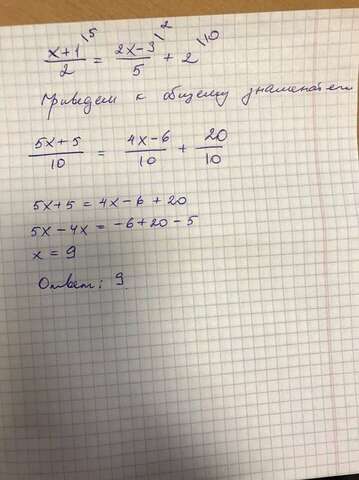 (x+1)/2 \5 = (2x-3)/5 \2 + 2 \10
Приведем к общему знаменателю
(5x+5)/10 = (4x-6)/10 + 20/10
5x+5 = 4x-6+20
5x-4x = -6+20-5
x = 9
Ответ: 9.